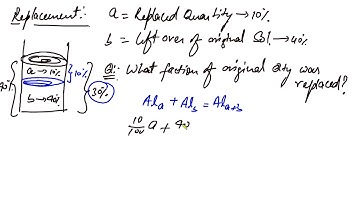 Replacement:- a = Replaced Quantity → 10%
b = left over of original Sol. → 40%
a → 10%
10%
b → 40%
30%
Q:- What faction of original Qty was replaced?
Al_a + Al_b = Al_{a+b}
10/100 a + 40